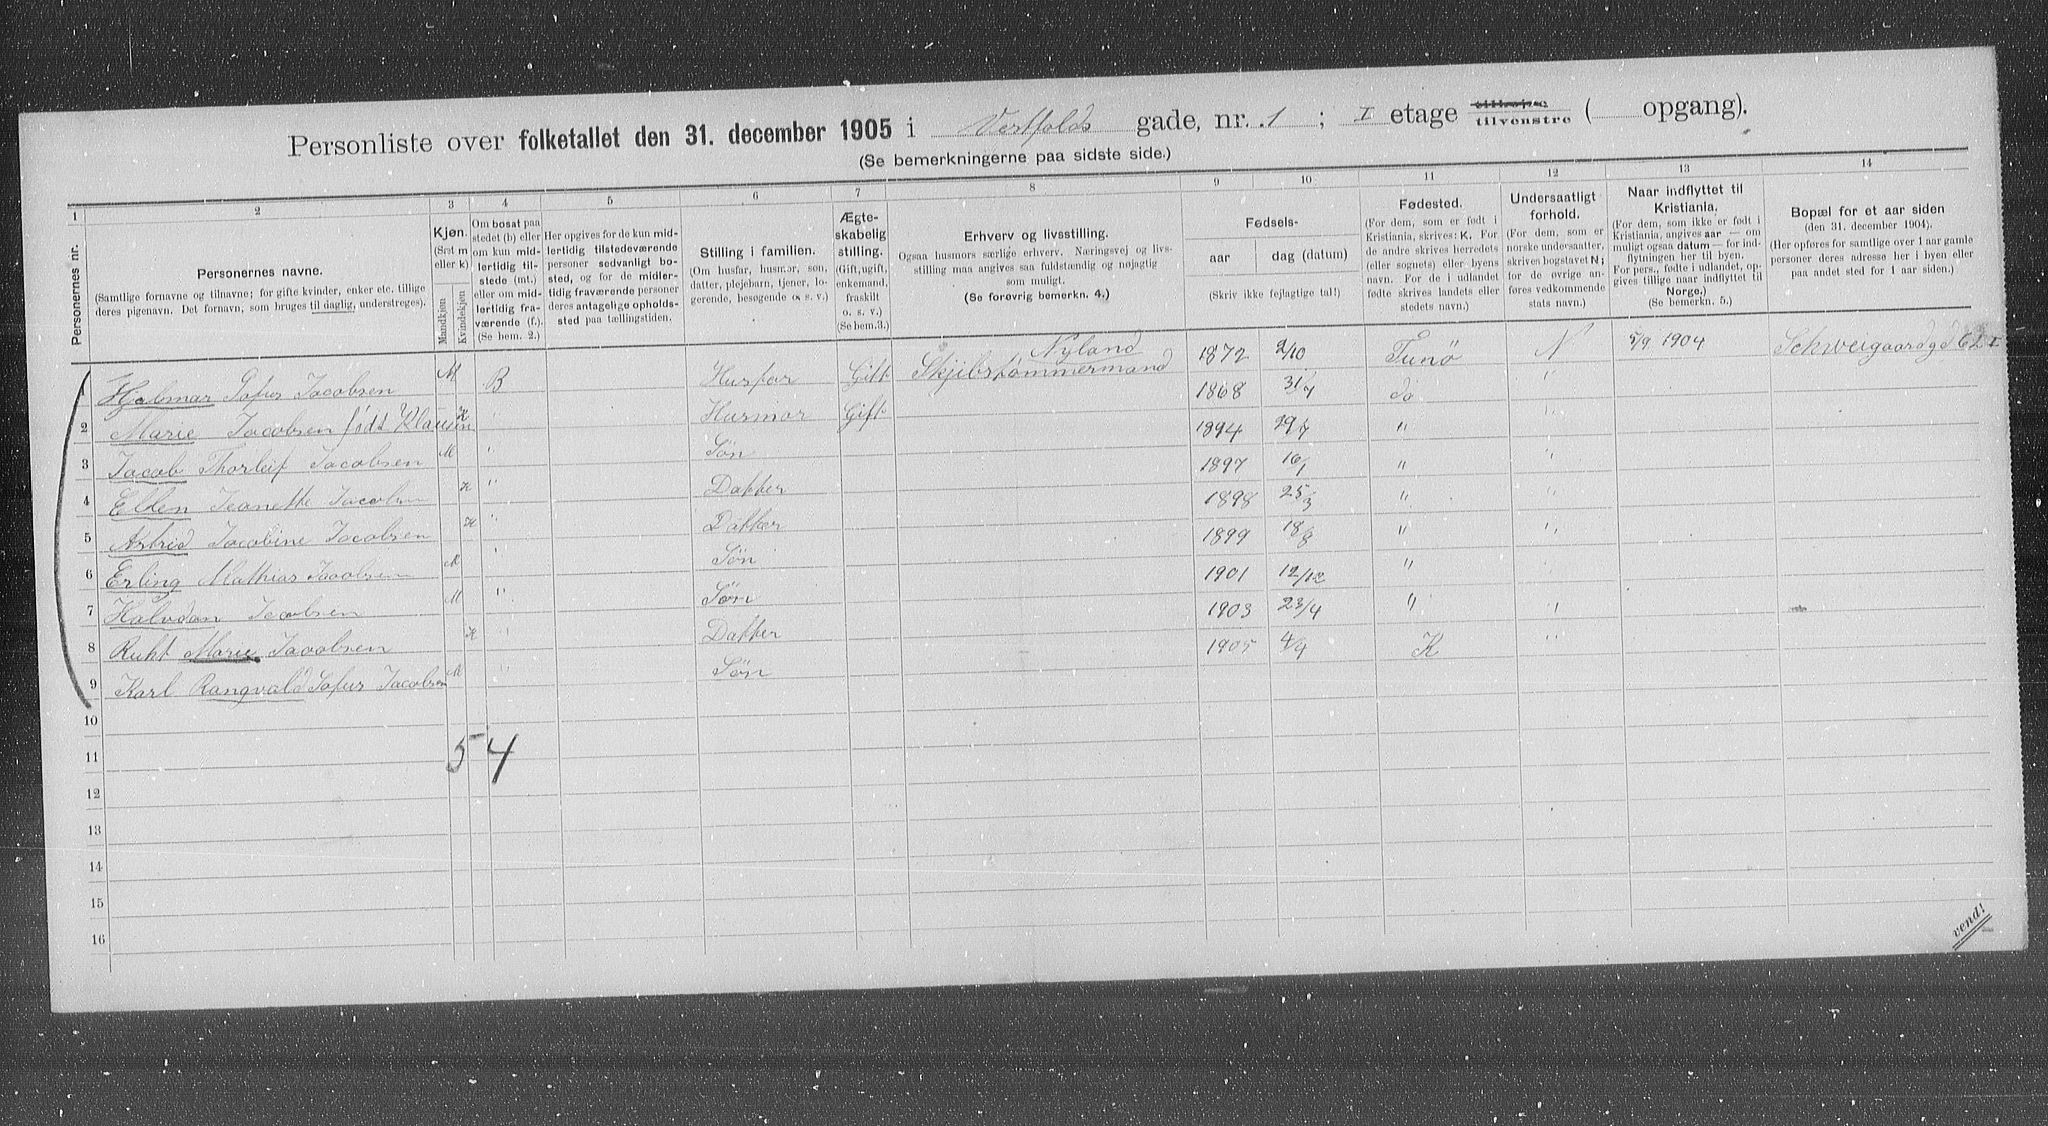 Personliste over folketallet den 31. december 1905 i Vestfolds gade, nr. 1 ; I etage tilhøire tilvenstre ( opgang).
(Se bemerkningerne paa sidste side.)
1 2 3 4 5 6 7 8 9 10 11 12 13 14
Personernes nr.
Personernes navne.
(Samtlige fornavne og tilnavne; for gifte kvinder, enker etc. tillige
deres pigenavn. Det fornavn, som bruges til daglig, understreges).
Kjøn.
(Sæt m
eller k)
Mandkjøn
Kvindekjøn
Om bosat paa
stedet (b) eller
om kun mid-
lertidig til-
stede (mt.)
eller om mid-
lertidig fra-
værende (f.).
(Se bem. 2.)
Her opgives for de kun mid-
lertidig tilstedeværende
personer sedvanligt bo-
sted, og for de midler-
tidig fraværende personer
deres antagelige opholds-
sted paa tællingstiden.
Stilling i familien.
(Om husfar, husmor, søn,
datter, plejebarn, tjener, lo-
gerende, besøgende o. s. v.)
Ægte-
skabelig
stilling.
(Gift, ugift,
enkemand,
fraskilt
o. s. v.)
(Se bem.3.)
Erhverv og livsstilling.
Ogsaa husmors særlige erhverv. Næringsvej og livs-
stilling maa angives saa fuldstændig og nøjagtig
som muligt.
(Se forøvrig bemerkn. 4.)
Fødsels-
aar
dag (datum)
(Skriv ikke fejlagtige tal!)
Fødested.
(For dem, som er født i
Kristiania, skrives: K. For
de andre skrives herredets
(eller sognets) eller byens
navn. For de i udlandet
fødte skrives landets eller
stedets navn.)
Undersaatligt
forhold.
(For dem, som er
norske undersaatter,
skrives bogstavet N;
for de øvrige an-
føres vedkommende
stats navn.)
Naar indflyttet til
Kristiania.
(For dem, som ikke er født i
Kristiania, angives aar — om
muligt ogsaa datum — for ind-
flytningen her til byen.
For pers., fødte i udlandet, op-
gives tillige naar indflyttet til
Norge.)
(Se bemerkn. 5.)
Bopæl for et aar siden
(den 31. december 1904).
(Her opføres for samtlige over 1 aar gamle
personer deres adresse her i byen eller
paa andet sted for 1 aar siden.)
Nyland
1 Hjalmar Sofus Jacobsen M B Husfar Gift Skjibstømmermand 1872 2/10 Tunø N 5/9 1904 Schweigaardgd 62 I
2 Marie Jacobsen født Klausen K " Husmor Gift 1868 31/7 do "
3 Jacob Thorleif Jacobsen M " Søn 1894 29/7 " "
4 Ellen Jeanette Jacobsen K " Datter 1897 16/1 " "
5 Astrid Jacobine Jacobsen K " Datter 1898 25/3 " "
6 Erling Mathias Jacobsen M " Søn 1899 18/8 " "
7 Halvdan Jacobsen M " Søn 1901 12/12 " "
8 Ruht Marie Jacobsen K " Datter 1903 23/4 " "
9 Karl Rangvald Sofus Jacobsen M " Søn 1905 4/9 K "
10
11 5 4
12
13
14
15
16
vend!